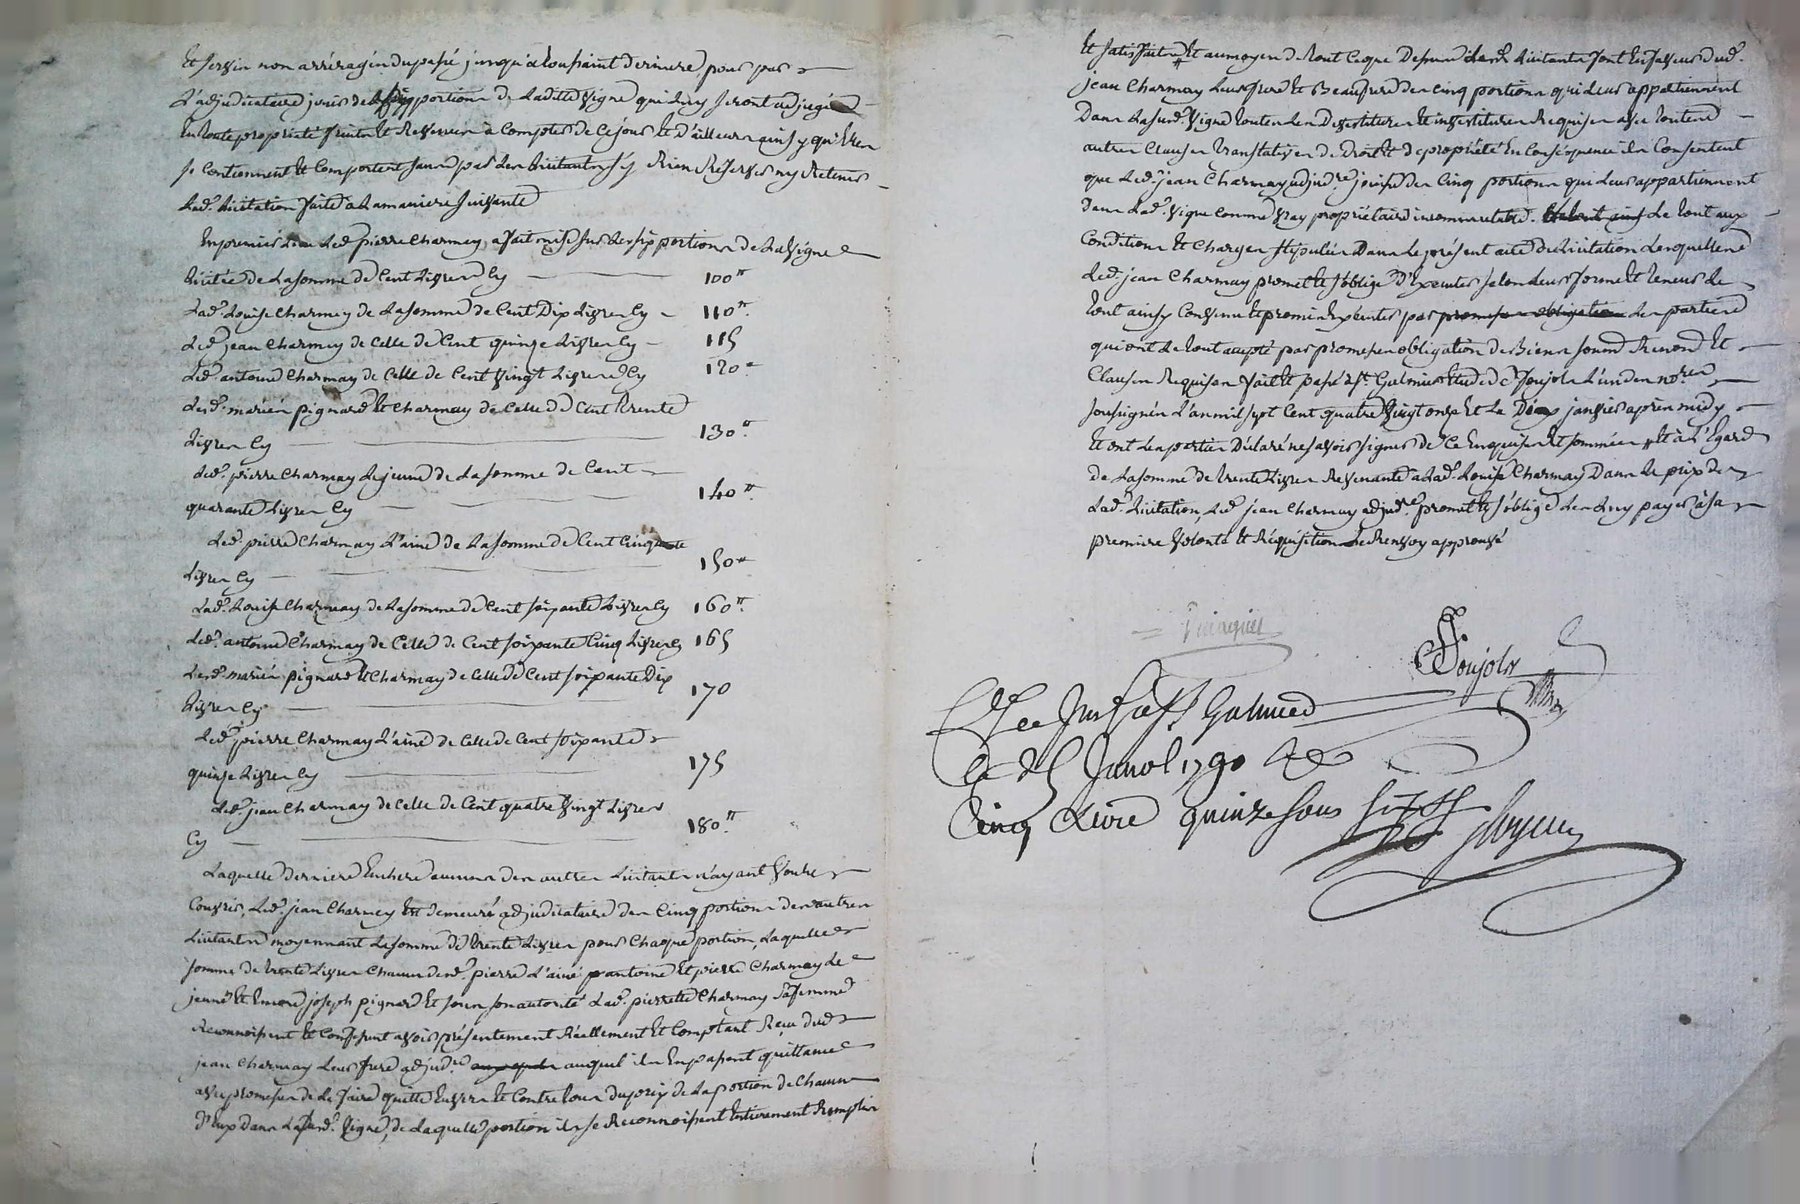 et servir non arrérages du passé jusqu'à toussaint derniere, pour par
L'adjudicataire jouir des six portions de Ladite vigne qui Luy seront adjugées
en toute propriété fruits et revenus à compter de ce jour et d'ailleurs ainsy qu'elles
se contiennent et comportent sans par Les Licitants s'y rien reserver ny retenir
Lad. Licitation faite a La maniere suivante
En premier Lieu Led. pierre Charmay a fait mise sur Les six portions de La vigne
Licitée de La somme de Cent Livres Cy 100tt
Lad. Louise Charmey de La somme de Cent Dix Livres Cy 110tt
Led. jean Charmey de Celle de Cent quinze Livres Cy 115
Led. antoine Charmay de Celle de Cent vingt Livres Cy 120tt
Les d. mariés pignard et Charmay de Celle de Cent trente
Livres Cy 130tt
Led. pierre Charmay Le jeune de La somme de Cent
quarante Livres Cy 140tt
Led. pierre Charmay L'ainé de La somme de Cent Cinquante
Livres Cy 150tt
Lad. Louise Charmay de La somme de Cent soixante Livres Cy 160tt
Led. antoine Charmay de Celle de Cent soixante Cinq Livres Cy 165
Les d. mariés pignard et Charmay de Celle de Cent soixante Dix
Livres Cy 170
Led. pierre Charmay L'ainé de Celle de Cent soixante
quinze Livres Cy 175
Led. jean Charmay de Celle de Cent quatre vingt Livres
Cy 180tt
Laquelle derniere Enchere aucun des autres Licitants n'ayant voulu
Couvrir, Led. jean Charmey est demeuré adjudicataire des Cinq portions des autres
Licitants moyennant La somme de trente Livres pour Chaque portion, Laquelle
somme de trente Livres Chacun desd. pierre L'ainé antoine et pierre Charmay Le
jeune et Encore joseph pignard et sous son autorité Lad. pierrette Charmay sa femme
Reconnoissent et Confessent avoir présentement Réellement et Comptant Reçu dud.
jean Charmay Leur frere adjud.re auquel ils En passent quittance
avec promesse de Le faire quitte Envers et Contre tous du prix de La portion de Chacun
d'Eux Dans La susd. vigne, de Laquelle portion ils se Reconnoissent Entierement Remplis
et satisfaits et au moyen de tout Ce que Dessus Les d. Licitants sont En faveur dud.
jean Charmay Leur frere et Beaufrere des cinq portions qui Leur appartiennent
Dans La sud. vigne toutes Les Devestitures et investitures Requises avec toutes
autres Clauses translatives de droit et de propriété En Conséquence ils Consentent
que Led. jean Charmay adjud.re jouisse des Cinq portions qui Leur appartiennent
Dans Lad. vigne Comme vray propriétaire incommutable. Le tout aux
Conditions et Charges stipulées Dans Le présent acte de Licitation Lesquelles
Led. jean Charmay promet et s'oblige D'Executer selon Leur forme et teneur Le
tout ainsy Convenu et promis Executer par Les parties
qui ont Le tout accepté par promesses obligation de Biens soumd. Renond. et
Clauses Requises fait et passé à St. Galmier Etude de Me soujols L'un des no.res
soussignés L'an mil sept Cent quatre vingt onze et Le Dix janvier après midy
et ont Les parties Déclaré ne savoir signer de Ce Enquises et sommées et à L'Egard
de La somme de trente Livres Revenante a Lad. Louise Charmay Dans Le prix de
Lad. Licitation, Led. jean Charmay adjud.re promet et s'oblige de La Luy payer à sa
premiere volonté et Réquisition Le Renvoy approuvé
Soujols
Galmier
Cinq Livre quinze sous